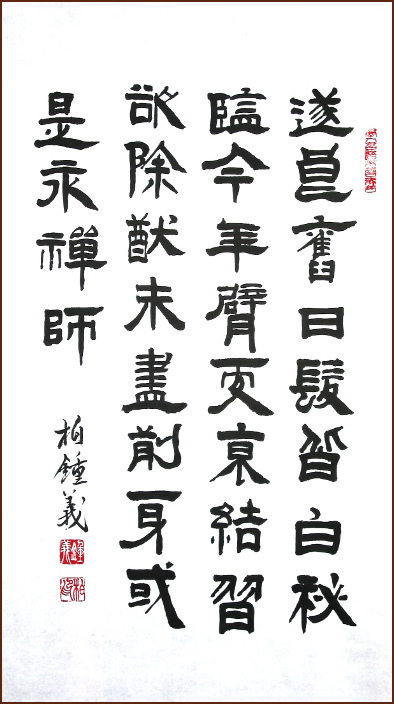 遂良舊日髮皆白秘
臨今年臂更衰結習
欲除猷未盡前身或
是永禪師
柏鍾義